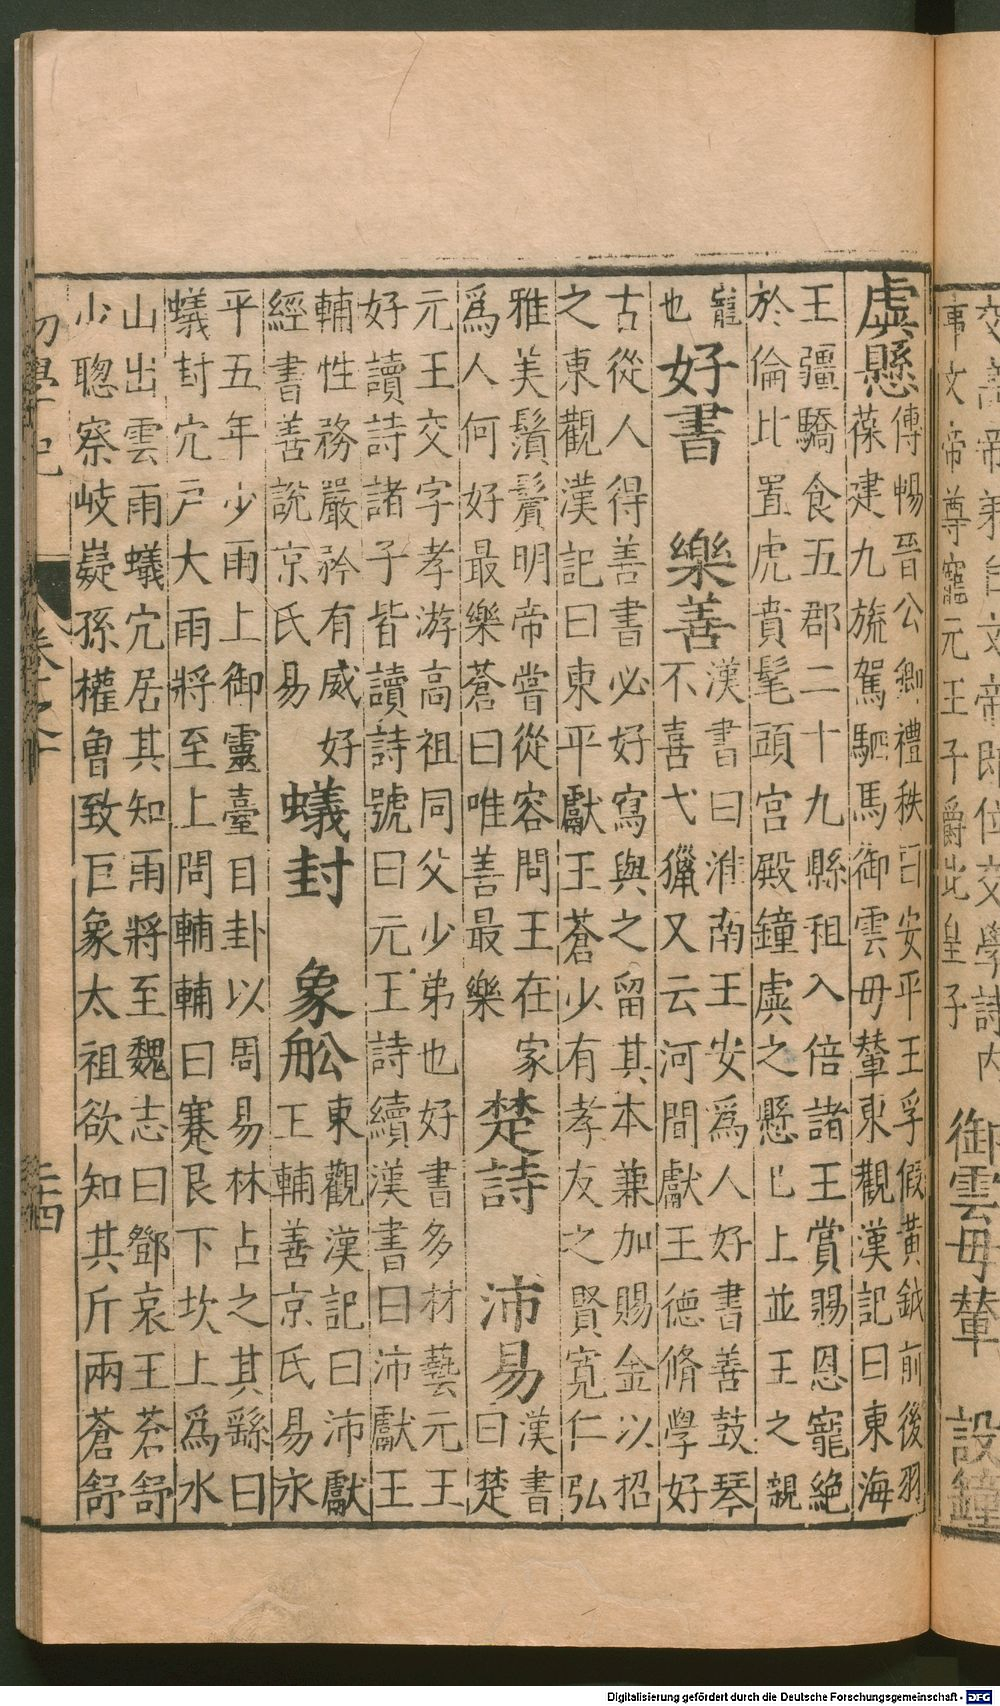 事文帝尊寵元王子爵比皇子
御雲毋輦 設鐘
虡懸
傅暢晉公卿禮秩曰安平王孚假黃鉞前後羽
葆建九旒駕駟馬御雲毋輦東觀漢記曰東海
王彊驕食五郡二十九縣租入倍諸王賞賜恩寵絕
於倫比置虎賁髦頭宮殿鐘虡之懸已上並王之親
寵
也
好書 樂善
漢書曰淮南王安爲人好書善鼓琴
不喜弋獵又云河間獻王德脩學好
古從人得善書必好寫與之留其本兼加賜金以招
之東觀漢記曰東平獻王蒼少有孝友之賢寬仁弘
雅美鬚鬢明帝嘗從容問王在家
爲人何好最樂蒼曰唯善最樂
楚詩 沛易
漢書
曰楚
元王交字孝游高祖同父少弟也好書多材藝元王
好讀詩諸子皆讀詩號曰元王詩續漢書曰沛獻王
輔性務嚴矜有威好
經書善說京氏易
蟻封 象舩
東觀漢記曰沛獻
王輔善京氏易永
平五年少雨上御靈臺自卦以周易林占之其繇曰
蟻封穴戸大雨將至上問輔輔曰蹇艮下坎上爲水
山出雲雨蟻穴居其知雨將至魏志曰鄧哀王蒼舒
少聰察岐嶷孫權曾致巨象太祖欲知其斤兩蒼舒
初學記
Digitalisierung gefördert durch die Deutsche Forschungsgemeinschaft - DFG